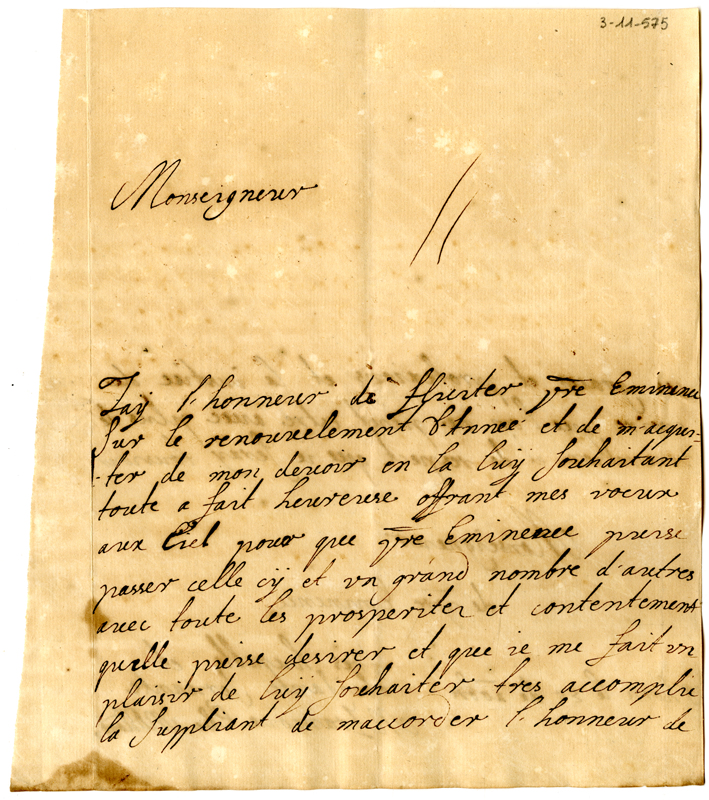 3-11-575
Monseigneur
Jay l'honneur de fliciter vre Eminence
sur le renouvelement d'Année et de m'acqui-
-ter de mon devoir en la luÿ souhaitant
toute a fait heureuse offrant mes voeux
aux Ciel pour que vre Eminence puise
passer celle cÿ et vn grand nombre d'autres
avec toute les prosperitez et contentement
qu'elle puise desirer et que ie me fait vn
plaisir de luÿ souhaiter tres accomplie
la suppliant de maccorder l'honneur de